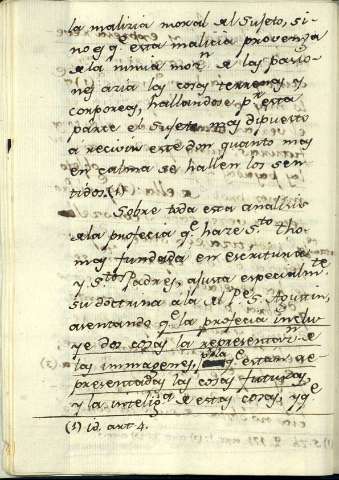 la malizia moral del Sujeto, si-
no es q.e esta malicia provenga
de la nimia mozn. de las pasio-
nes azia las cosas terrenas y
corporeas, hallandose p.r esta
parte el Sujeto mas dipuesto
a recivir este don quanto mas
en calma se hallen los sen-
tidos. (1)
Sobre toda esta analisis
de la profecia q.e haze S.to Tho-
mas fundada en escrituras
y S.tos Padres, ajusta especialm.te
su doctrina a la del P.e S. Agustin,
asentando q.e la profecia inclu-
ye dos cosas la representaz.n de
las immagenes, q.e estan re-
presentadas las cosas futuras,
y la intelig.a de estas cosas, y q.e
(1) id. art 4.